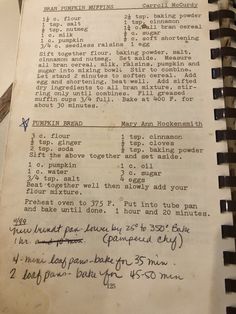 BRAN PUMPKIN MUFFINS Carroll McCurdy
1½ c. flour 2½ tsp. baking powder
½ tsp. salt 1 tsp. cinnamon
½ tsp. nutmeg 1 c. all bran cereal
1 c. milk ½ c. sugar
1 c. pumpkin ¼ c. soft shortening
3/4 c. seedless raisins 1 egg
Sift together flour, baking powder, salt,
cinnamon and nutmeg. Set aside. Measure
all bran cereal, milk, raisins, pumpkin and
sugar into mixing bowl. Stir to combine.
Let stand 2 minutes to soften cereal. Add
egg and shortening, beat well. Add sifted
dry ingredients to all bran mixture, stir-
ring only until combined. Fill greased
muffin cups 3/4 full. Bake at 400 F. for
about 30 minutes.
PUMPKIN BREAD Mary Ann Hockensmith
3 c. flour 1 tsp. cinnamon
½ tsp. ginger ½ tsp. cloves
2 tsp. soda ½ tsp. baking powder
½ tsp. salt 1 tsp. cinnamon
Sift the above together and set aside.
1 c. pumpkin 1 c. oil
1 c. water 3 c. sugar
3/4 tsp. salt 4 eggs
Beat together well then slowly add your
flour mixture.
Preheat oven to 375 F. Put into tube pan
and bake until done. 1 hour and 20 minutes.
new bundt pan lower by 25° to 350° Bake
1 hr (Pampered Chef)
4 - mini loaf pans - bake for 35 min.
2 loaf pans - bake for 45-50 min
125